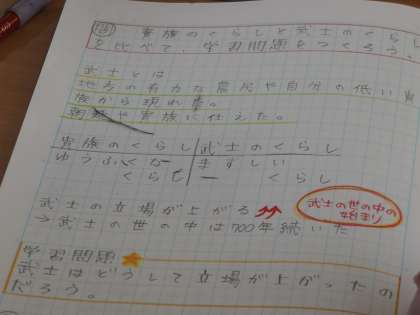 貴族のくらしと武士のくらし
を比べて、学習問題をつくろう。
武士とは
地方の有力な農民や自分の低い貴
族から現れた。
朝廷や貴族に仕えた。
貴族のくらし 武士のくらし
ゆうふくな まずしい
くらし くらし
武士の立場が上がる
武士の世の中の
始まり
→武士の世の中は700年続いた
学習問題
武士はどうして立場が上がったの
だろう。